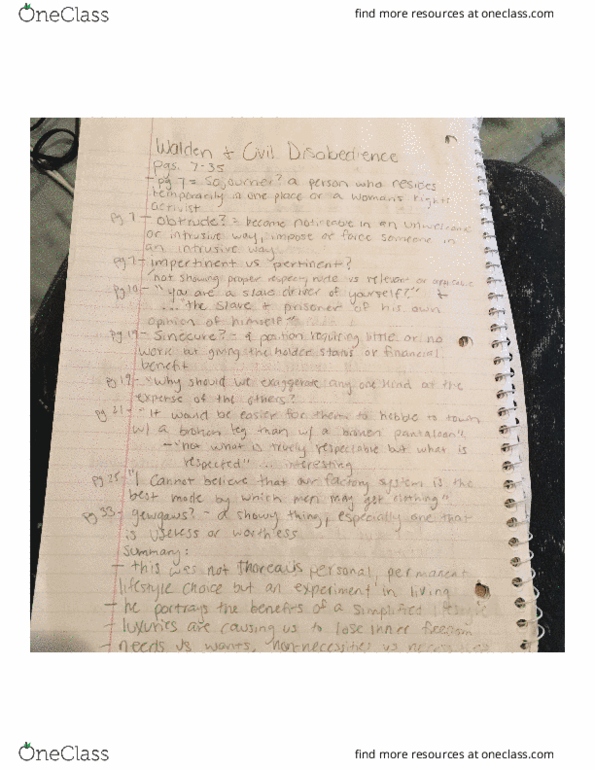 OneClass
find more resources at oneclass.com
Walden + Civil Disobedience
pgs. 7-35
- pg 7 = Sojourner? a person who resides
temporarily is one place or a womans rights
activist
pg 7 - obtrude? = become noticeable in an unwelcome
or intrusive way, impose or force someone in
an intrusive way
pg 7 - impertinent vs pertinent?
not showing proper respect, rude vs relevant or applicable
pg 10 - "you are a slave driver of yourself?" +
"... the slave + prisoner of his own
opinion of himself"
pg 19 - Sinecure? - a position requiring little or no
work but giving the holder status or financial
benefit
pg 19 - "why should we exaggerate any one kind at the
expense of the others?
pg 21 - "It would be easier for them to hobble to town
w/ a broken leg than w/ a broken pantaloon"
- "not what is truely respectable but what is
respected" ... interesting
pg 25 - "I cannot believe that our factory system is the
best mode by which men may get clothing"
pg 33 - gewgaws? - a showy thing, especially one that
is useless or worthless
Summary:
- this was not Thoreau's personal, permanent
lifestyle choice but an experiment in living
- he portrays the benefits of a simplified lifestyle
- luxuries are causing us to lose inner freedom
- needs vs wants, non-necessities vs necessities
OneClass
find more resources at oneclass.com